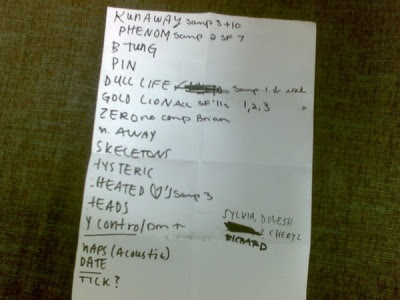 RUNAWAY samp 3+10
PHENOM samp 2 SF 7
B TUNG
PIN
DULL LIFE samp 1 &
GOLD LION ALL SF'11s 1,2,3
ZERO no comp Brian
n. AWAY
SKELETONS
HYSTERIC
.HEATED ♡'S samp 3
HEADS
Y Control
SYLVIA, DINESH
CHERYL
RICHARD
MAPS (Acoustic)
DATE
TICK?